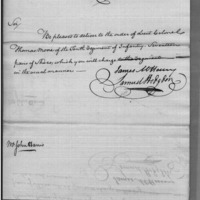 Sir
Be pleased to deliver to the order of Lieut Colonel
Thomas Moore of the Tenth Regiment of Infantry Seventeen
pairs of Shoes which you will charge to the
in the usual manner
James McHenry
Samuel Hodgdon
Mr John Harris